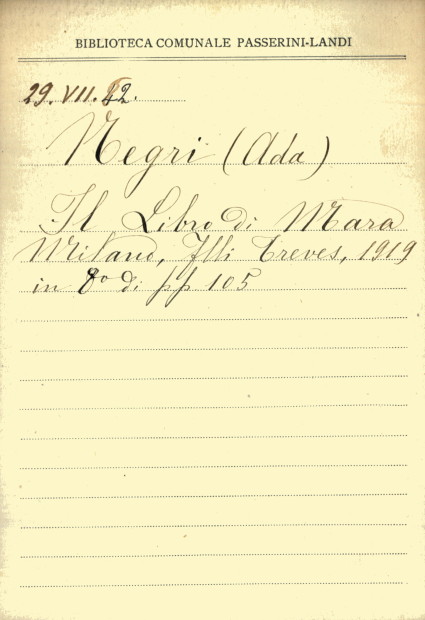 BIBLIOTECA COMUNALE PASSERINI-LANDI
29. VII. 12.
Negri (Ada)
Il Libro di Mara
Milano, Flli Treves, 1919
in 8o di pp 105